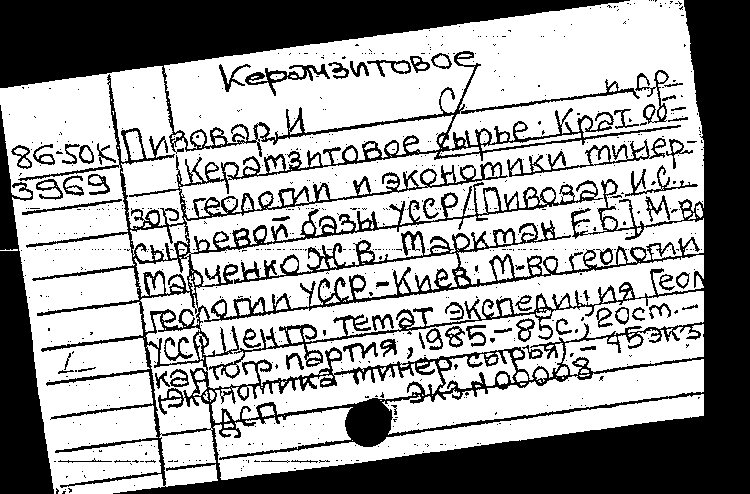 Керамзитовое
86-50К
3969
Пивовар, И С и др.
Керамзитовое сырье: Крат. об-
зор геологии и экономики минер.-
сырьевой базы УССР/[Пивовар И.С.,
Марченко Ж.В., Марктан Е.Б.]; М-во
геологии УССР.-Киев: М-во геологии
УССР, Центр. темат экспедиция, Геол
картогр. партия, 1985.-85с.; 20см.-
(Экономика минер. сырья).-45экз.
ДСП. Экз.N 00008.